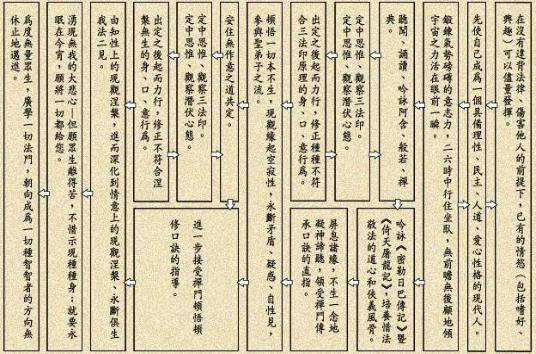 在沒有違背法律、傷害他人的前提下，已有的情慾（包括嗜好、
興趣）可以儘量發揮。
先使自己成為一個具備理性、民主、人道、愛心性格的現代人。
鍛鍊氣勢磅礡的意志力，二六時中行住坐臥，無前瞻無後顧地傾
宇宙之力活在眼前一瞬。
聽聞、誦讀、吟詠阿含、般若、禪
典。
吟詠《密勒日巴傳記》暨
《倚天屠龍記》，培養惜法
敬法的道心和俠義風骨。
定中思惟、觀察三法印。
定中思惟、觀察潛伏心態。
出定之後起而力行，修正種種不符
合三法印原理的身、口、意行為。
屏息諸緣，不生一念地
凝神諦聽，領受禪門傳
承口訣的直指。
頓悟一切本不生，現觀緣起空寂性，永斷矛盾、疑惑、自性見，
參與聖弟子之流。
安住無作意之道共定。
定中思惟、觀察三法印。
定中思惟、觀察潛伏心態。
出定之後起而力行，修正不符合涅
槃無生的身、口、意行為。
進一步接受禪門頓悟頓
修口訣的指導。
由知性上的現觀涅槃，進而深化到情意上的現觀涅槃、永斷俱生
我法二見。
湧現無我的大悲心—但願眾生離得苦，不惜示現種種身；就要永
眠在今宵，願將一切都給您。
為度無量眾生，廣學一切法門，朝向成為一切種智智者的方向無
休止地邁進。